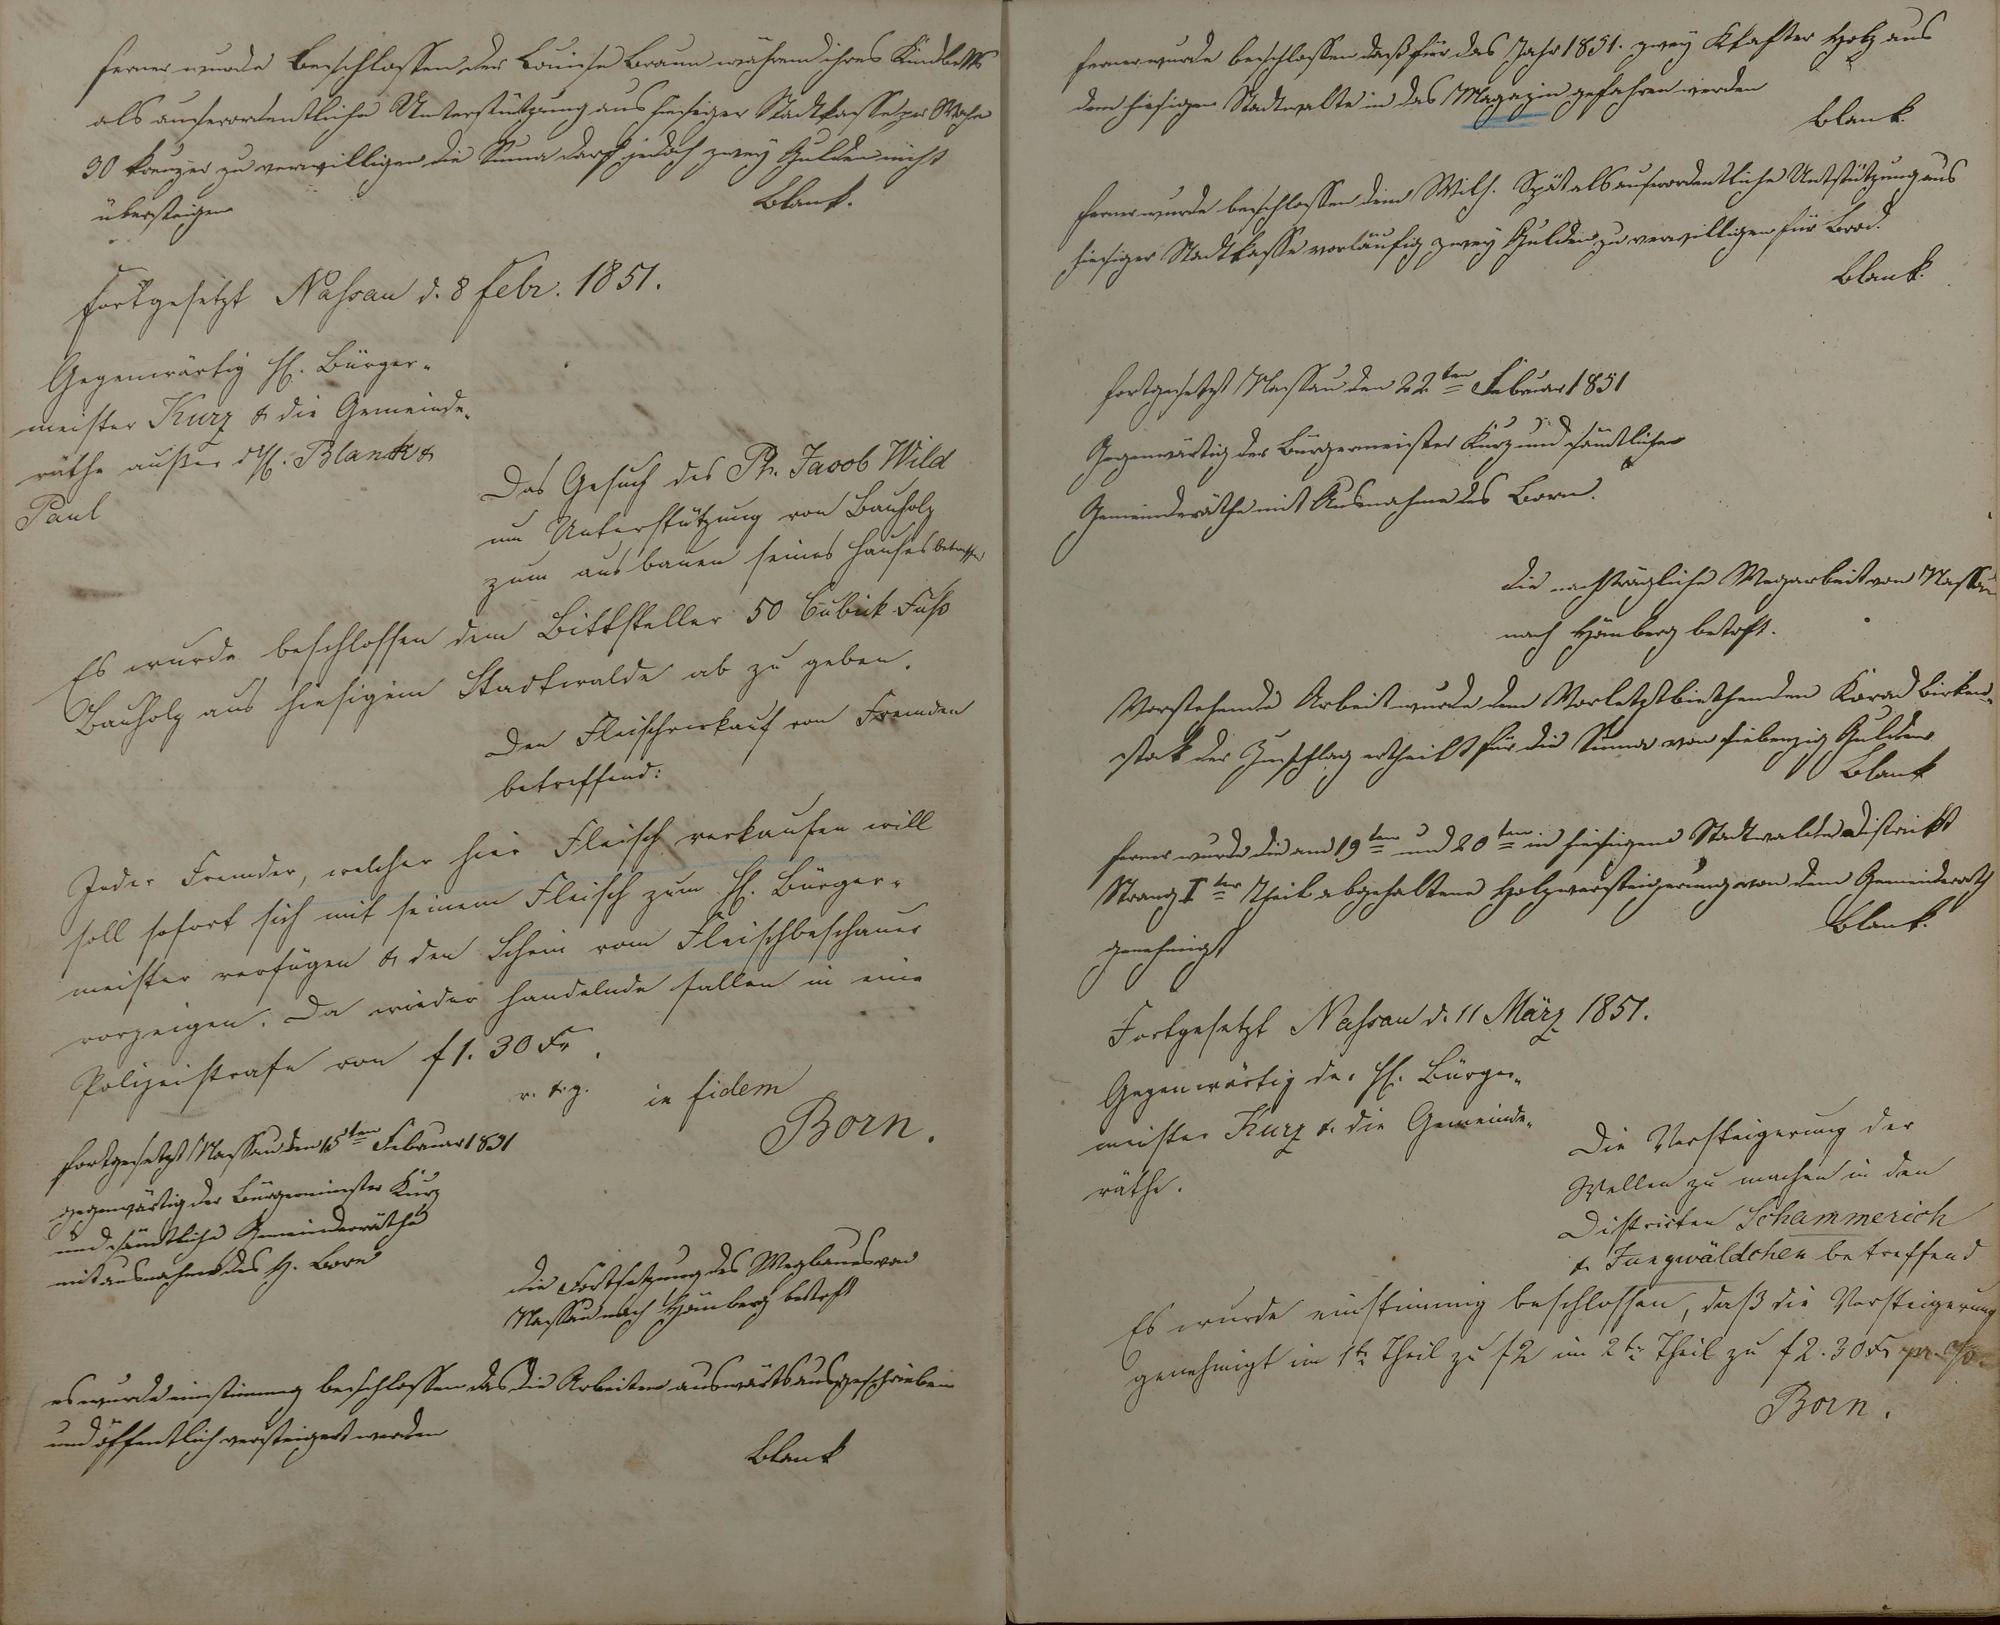 ferner wurde beschlossen der Louise Braun während ihres Kindbetts
als auserordentliche Unterstützung aus hiesiger Stadtkasse per Woche
30 Kreuzer zu verwilligen die Suma darf jedoch zwey Gulden nicht
übersteigen
Blank.
Fortgesetzt Nassau d. 8 Febr. 1851.
Gegenwärtig H. Bürger-
meister Kurz & die Gemeinde-
räthe außer d H. Blank &
Paul
Das Gesuch des Ph. Jacob Wild
um Unterstützung von Bauholz
zum ausbauen seines Hauses betreffend
Es wurde beschlossen dem Bittsteller 50 Cubick Fuß
Bauholz aus hiesigem Stadtwalde ab zu geben.
Den Fleischverkauf von Fremden
betreffend:
Jeder Fremder, welcher hier Fleisch verkaufen will
soll sofort sich mit seinem Fleisch zum H. Bürger-
meister verfügen & den Schein vom Fleischbeschauer
vorzeigen. Da wieder handelnde fallen in eine
Polizeistrafe von f 1. 30 Kr.
in fidem
Born.
fortgesetzt Nassau den 15ten Februar 1851
gegenwärtig der Bürgermeister Kurz
und sämtliche Gemeinderäthe
mit ausnahme des H. Born
die Fortsetzung des Wegbaues von
Nassau nach Hömberg betreft
es wurde einstimmig beschlossen das die Arbeiten auswärts ausgeschrieben
und öffentlich versteigert werden
Blank
ferner wurde beschlossen daß für das Jahr 1851. zwey Klafter Holz aus
dem hiesigen Stadtwalte in das Magazin gefahren werden
Blank.
ferner wurde beschlossen dem Wilh. Spät als auserordentliche Untstützung aus
hiesiger Stadtkasse vorläufig zwey Gulden zu verwilligen für Brod.
Blank.
fortgesetzt Nassau den 22ten Februar 1851
Gegenwärtig der Bürgermeister Kurz und sämtliche
Gemeinderäthe mit Ausnahme des Born.
die nachträgliche Wegarbeit von Nassau
nach Hömberg betreft.
Vorstehende Arbeit wurde dem Vorletztbiethenden Konrad Birken-
stock der Zuschlag ertheilt für die Suma von siebenzig Gulden
Blank
ferner wurde die am 19ten und 20ten in hiesigem Stadtwalde Distrikt
Strang Iter Theil abgehaltene Holzversteigerung von dem Gemeinderath
genehmigt
Blank.
Fortgesetzt Nassau d. 11 März 1851.
Gegenwärtig der H. Bürger-
meister Kurz & die Gemeinde-
räthe.
Die Versteigerung der
Wellen zu machen in den
Districten Schammerich
& Jungwäldchen betreffend
Es wurde einstimmig beschlossen, daß die Versteigerung
genehmigt im 1ten Theil zu f 2 im 2ten Theil zu f 2. 30 Kr pr.
Born.